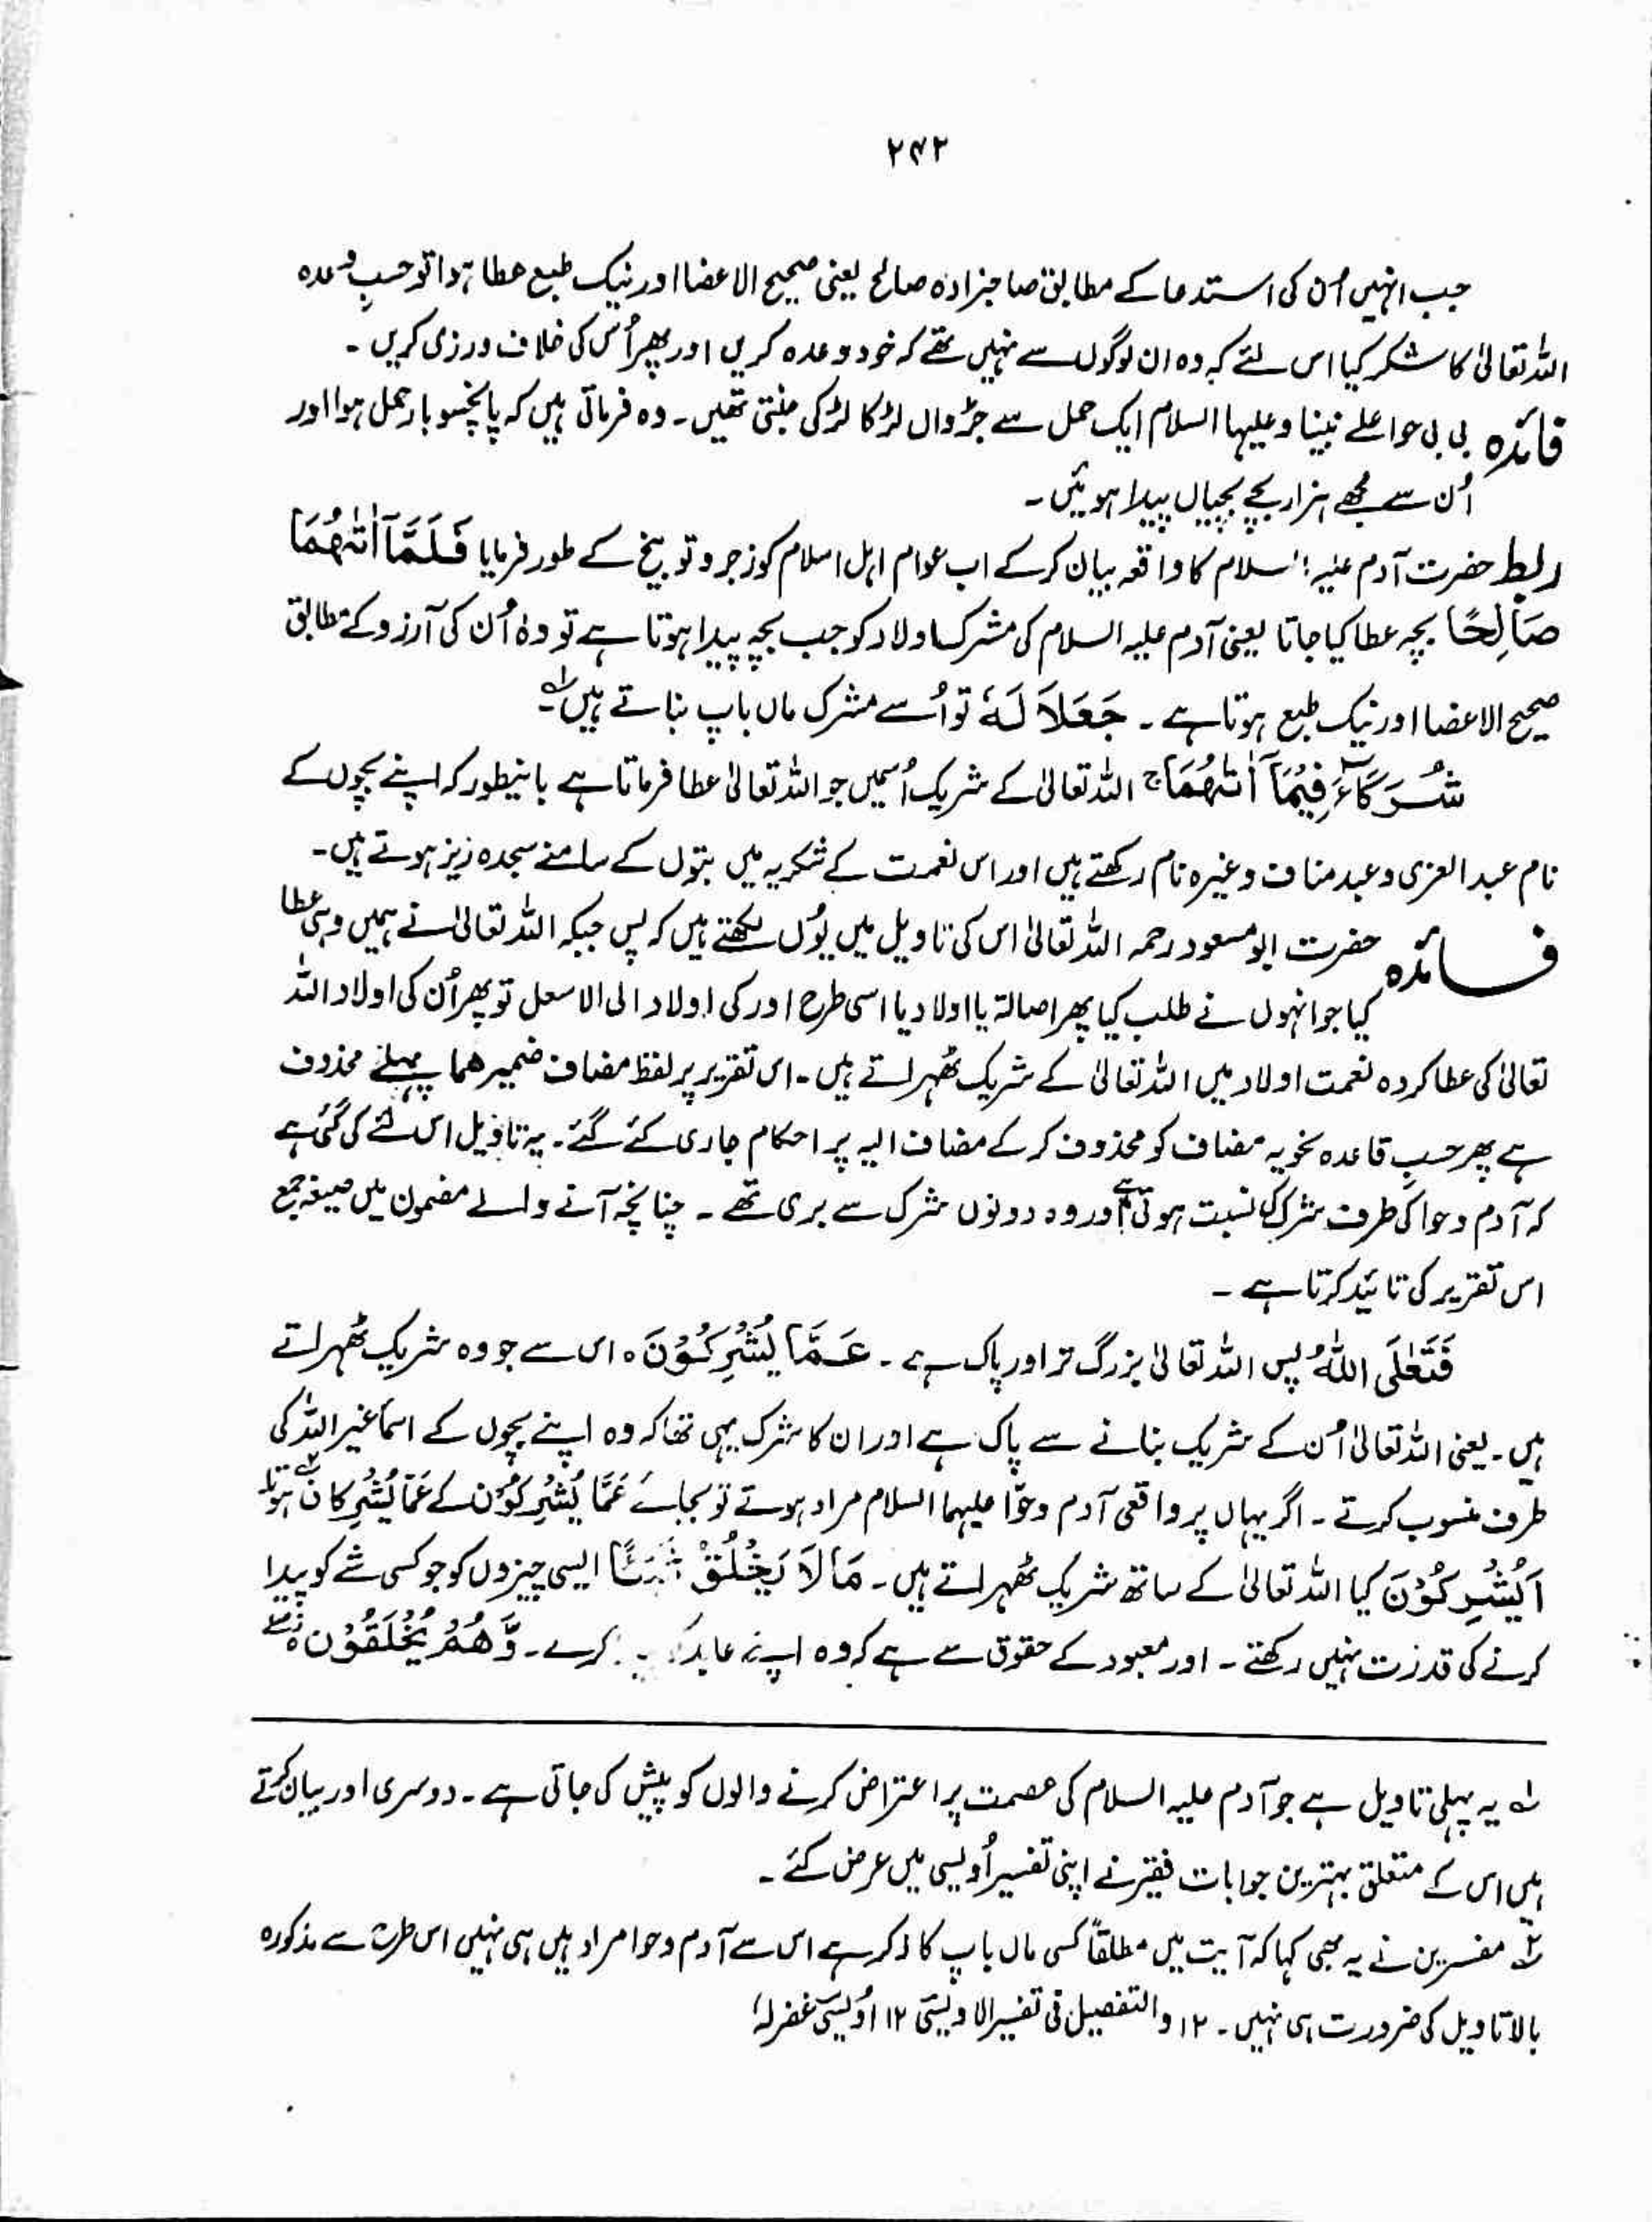 ۲۴۲
جب انہیں اُن کی استدعا کے مطابق صاحبزادہ صالح یعنی صحیح الاعضا اور نیک طبع عطا ہوا تو حسبِ وعدہ
اللہ تعالیٰ کا شکر کیا اس لئے کہ وہ ان لوگوں سے نہیں تھے کہ خود وعدہ کریں اور پھر اُس کی خلاف ورزی کریں ۔
فائدہ بی بی حوا علے نبینا و علیہا السلام ایک حمل سے جڑواں لڑکا لڑکی جنتی تھیں ۔ وہ فرماتی ہیں کہ پانچسو بار حمل ہوا اور
اُن سے مجھے ہزار بچے بچیاں پیدا ہوئیں ۔
ربط حضرت آدم علیہ السلام کا واقعہ بیان کر کے اب عوام اہل اسلام کو زجر و توبیخ کے طور فرمایا فَلَمَّآ اٰتٰهُمَا
صَالِحًا بچہ عطا کیا جاتا یعنی آدم علیہ السلام کی مشرک اولاد کو جب بچہ پیدا ہوتا ہے تو وہ اُن کی آرزو کے مطابق
صحیح الاعضا اور نیک طبع ہوتا ہے ۔ جَعَلَا لَهٗ تو اُسے مشرک ماں باپ بناتے ہیں ۔ لہ
شُرَكَآءَ فِيْمَآ اٰتٰهُمَا ج اللہ تعالیٰ کے شریک اُسمیں جو اللہ تعالیٰ عطا فرماتا ہے بانیطور کہ اپنے بچوں کے
نام عبد العزی و عبد مناف وغیرہ نام رکھتے ہیں اور اس نعمت کے شکریہ میں بتوں کے سامنے سجدہ ریز ہوتے ہیں ۔
فــائدہ حضرت ابو مسعود رحمہ اللہ تعالیٰ اس کی تاویل میں یوُں لکھتے ہیں کہ پس جبکہ اللہ تعالیٰ نے ہمیں وہی عطا
کیا جو انہوں نے طلب کیا پھر اصالۃ یا اولاد یا اسی طرح اور کی اولاد الی الاسعل تو پھر اُن کی اولاد اللہ
تعالیٰ کی عطا کردہ نعمت اولاد میں اللہ تعالیٰ کے شریک ٹھہراتے ہیں ۔ اس تقریر پر لفظ مضاف ضمیر ھما پہلے محذوف
ہے پھر حسبِ قاعدہ نحویہ مضاف کو محذوف کر کے مضاف الیہ پر احکام جاری کئے گئے ۔ یہ تاویل اس لئے کی گئی ہے
کہ آدم و حوا کی طرف شرک کی نسبت ہوتی ہے اور وہ دونوں شرک سے بری تھے ۔ چنانچہ آنے والے مضمون میں صیغہ جمع
اس تقریر کی تائید کرتا ہے ۔
فَتَعٰلَى اللّٰهُ پس اللہ تعالیٰ بزرگ تر اور پاک ہے ۔ عَمَّا يُشْرِكُوْنَ ہ اس سے جو وہ شریک ٹھہراتے
ہیں ۔ یعنی اللہ تعالیٰ اُن کے شریک بنانے سے پاک ہے اور ان کا شرک یہی تھا کہ وہ اپنے بچوں کے اسمأ غیر اللہ کی
طرف منسوب کرتے ۔ اگر یہاں پر واقعی آدم و حوّا علیہما السلام مراد ہوتے تو بجائے عَمَّا يُشْرِكُوْن کے عَمَّا يُشْرِكَانِ ہوتا ۲
اَيُشْرِكُوْنَ کیا اللہ تعالیٰ کے ساتھ شریک ٹھہراتے ہیں ۔ مَالَا يَخْلُقُ شَيْئًا ایسی چیزوں کو جو کسی شے کو پیدا
کرنے کی قدرت نہیں رکھتے ۔ اور معبود کے حقوق سے ہے کہ وہ اپنے عابد کرے ۔ وَّهُمْ يُخْلَقُوْنَ ہ
لہ یہ پہلی تاویل ہے جو آدم علیہ السلام کی عصمت پر اعتراض کرنے والوں کو پیش کی جاتی ہے ۔ دوسری اور بیان کرتے
ہیں اس کے متعلق بہترین جوابات فقیر نے اپنی تفسیر اُویسی میں عرض کئے ۔
۲ مفسرین نے یہ بھی کہا کہ آیت میں مطلقاً کسی ماں باپ کا ذکر ہے اس سے آدم و حوا مراد ہیں ہی نہیں اس طرح سے مذکورہ
بالا تاویل کی ضرورت ہی نہیں ۔ ۱۲ والتفصیل فی تفسیر الاویسی ۱۲ اُویسی غفرلہٗ